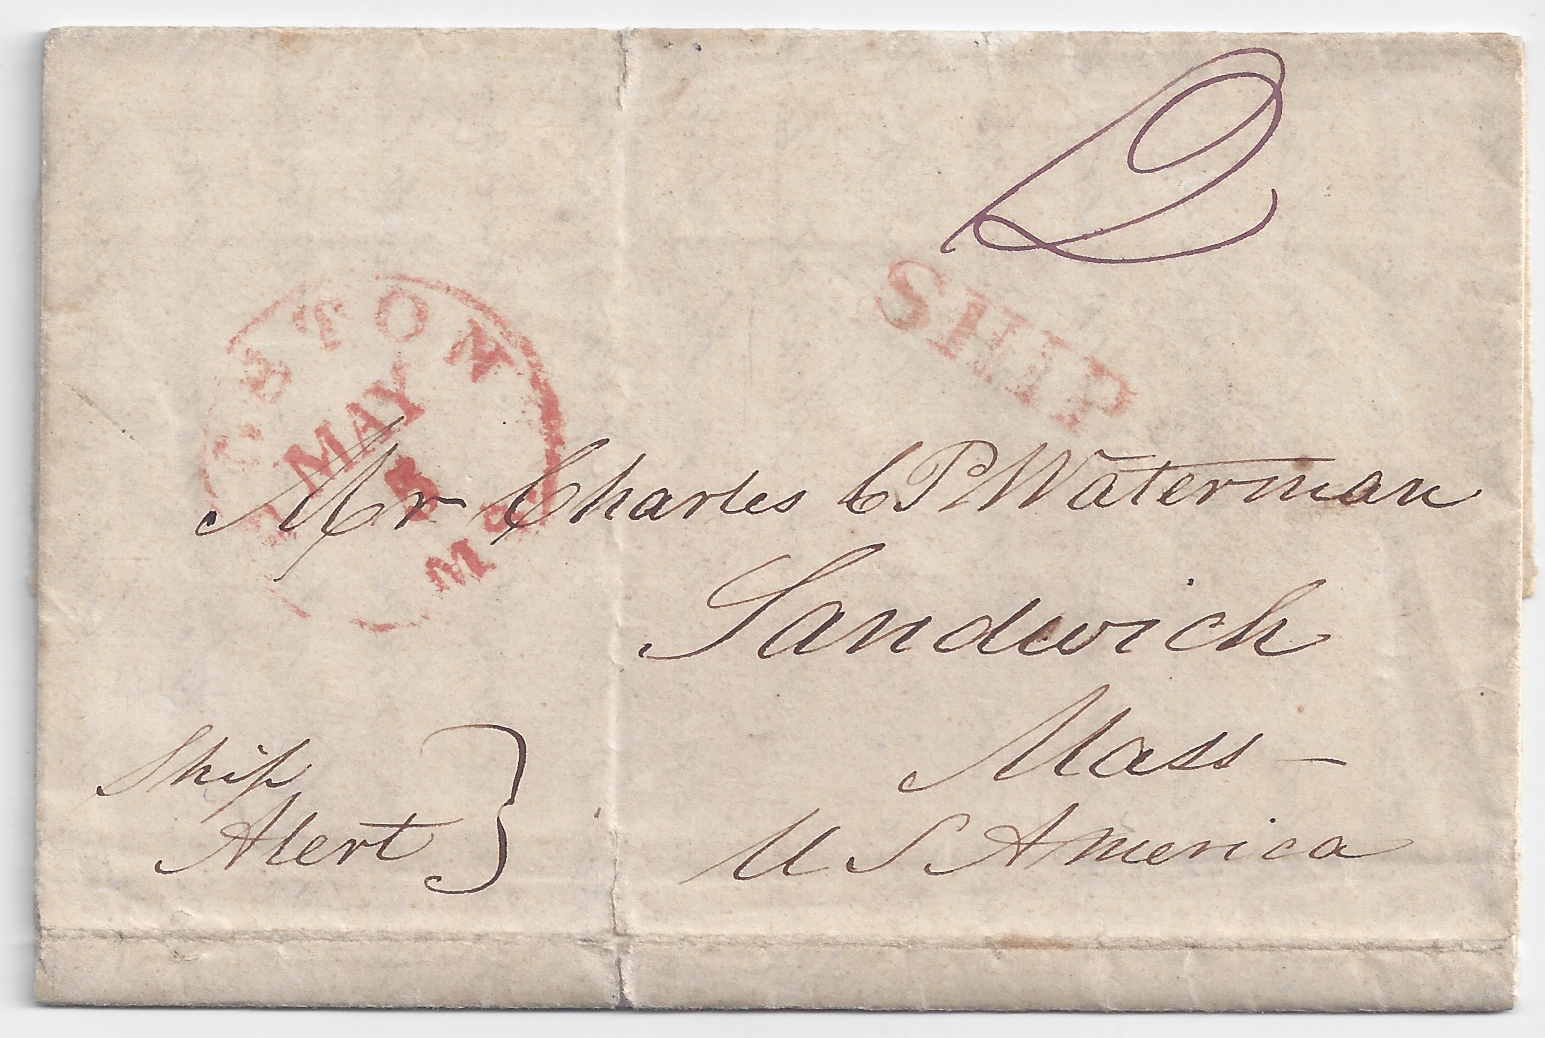 2
SHIP
MAY
5
Mr Charles C P Waterman
Sandwich
Mass
U S America
Ship
Alert